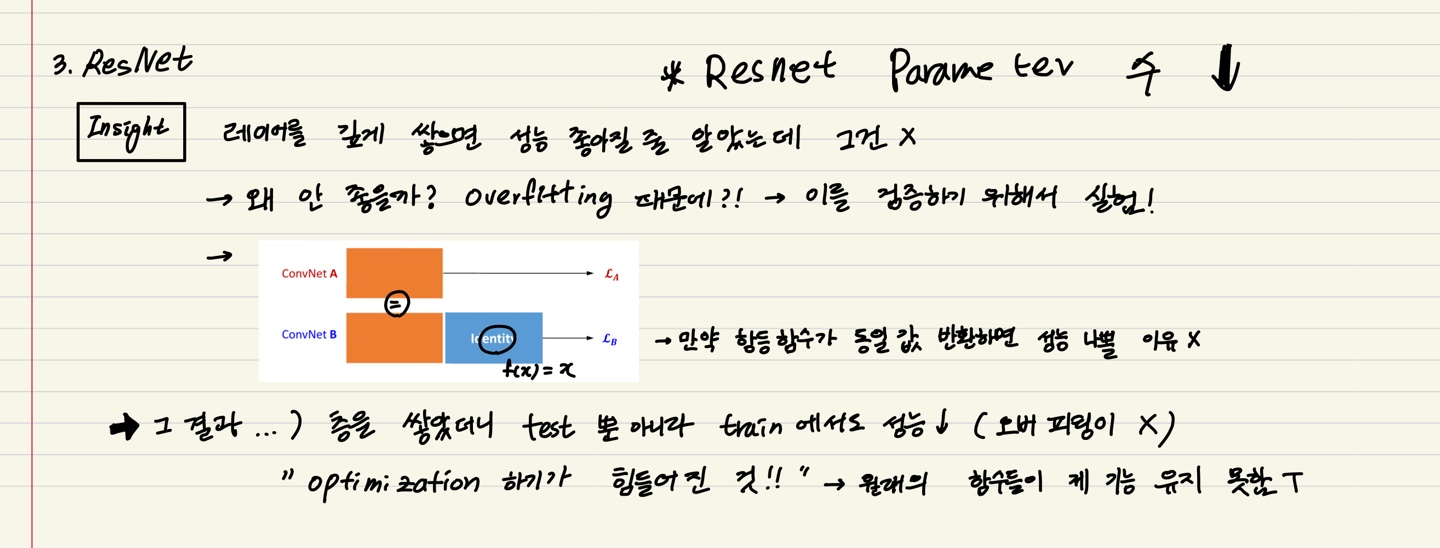 3. ResNet
* Resnet Parameter 수 ↓
Insight 레이어를 깊게 쌓으면 성능 좋아질 줄 알았는데 그건 X
→ 왜 안 좋을까? overfitting 때문에?! → 이를 검증하기 위해서 실험!
→
ConvNet A ℒA
=
ConvNet B Identity ℒB → 만약 항등함수가 동일 값 반환하면 성능 나쁠 이유 X
f(x) = x
➡ 그 결과 ...) 층을 쌓았더니 test 뿐 아니라 train 에서도 성능↓ (오버 피팅이 X)
" optimization 하기가 힘들어진 것!! " → 원래의 함수들이 제 기능 유지 못함 ㅜ